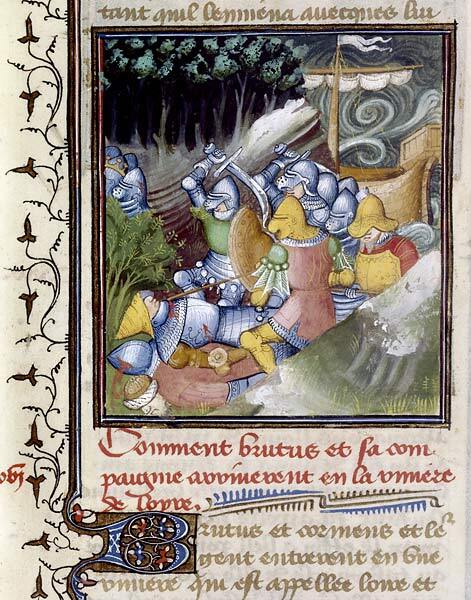 tant quil lenmena auecques lui
Comment brutus et sa com
paignie arriuerent en la riuiere
de loyre.
Brutus et corineus et le
gent entrerent en vne
riuiere qui est appellee loire et